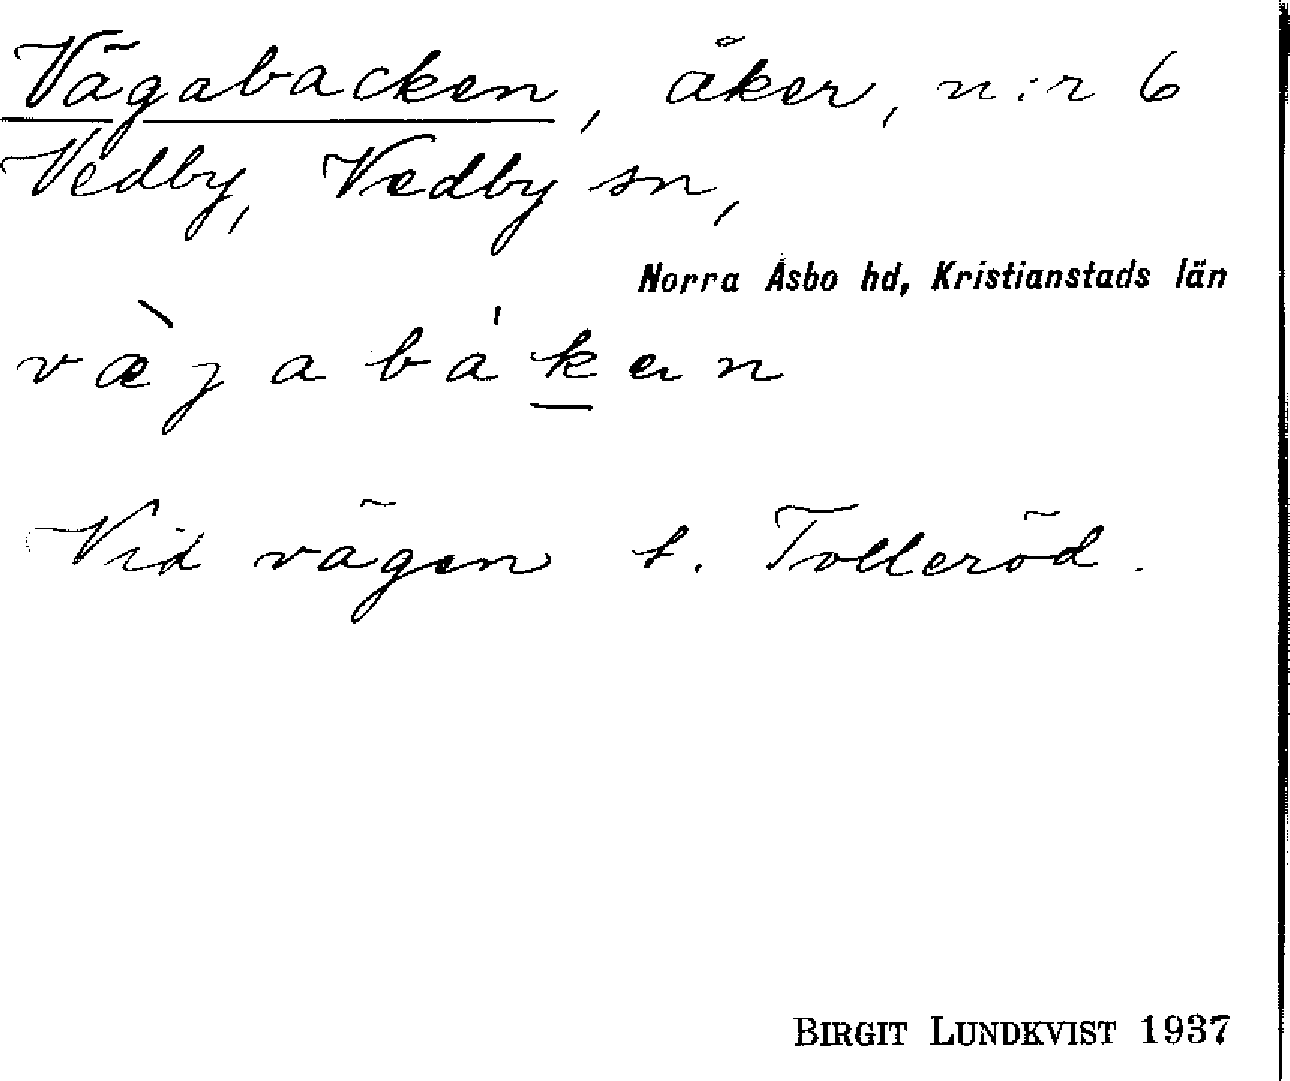 Vägabacken, åker, n:r 6
Vedby, Vedby sn,
Norra Åsbo hd, Kristianstads län
væ̀jabákan
Vid vägen t. Tolleröd.
BIRGIT LUNDKVIST 1937